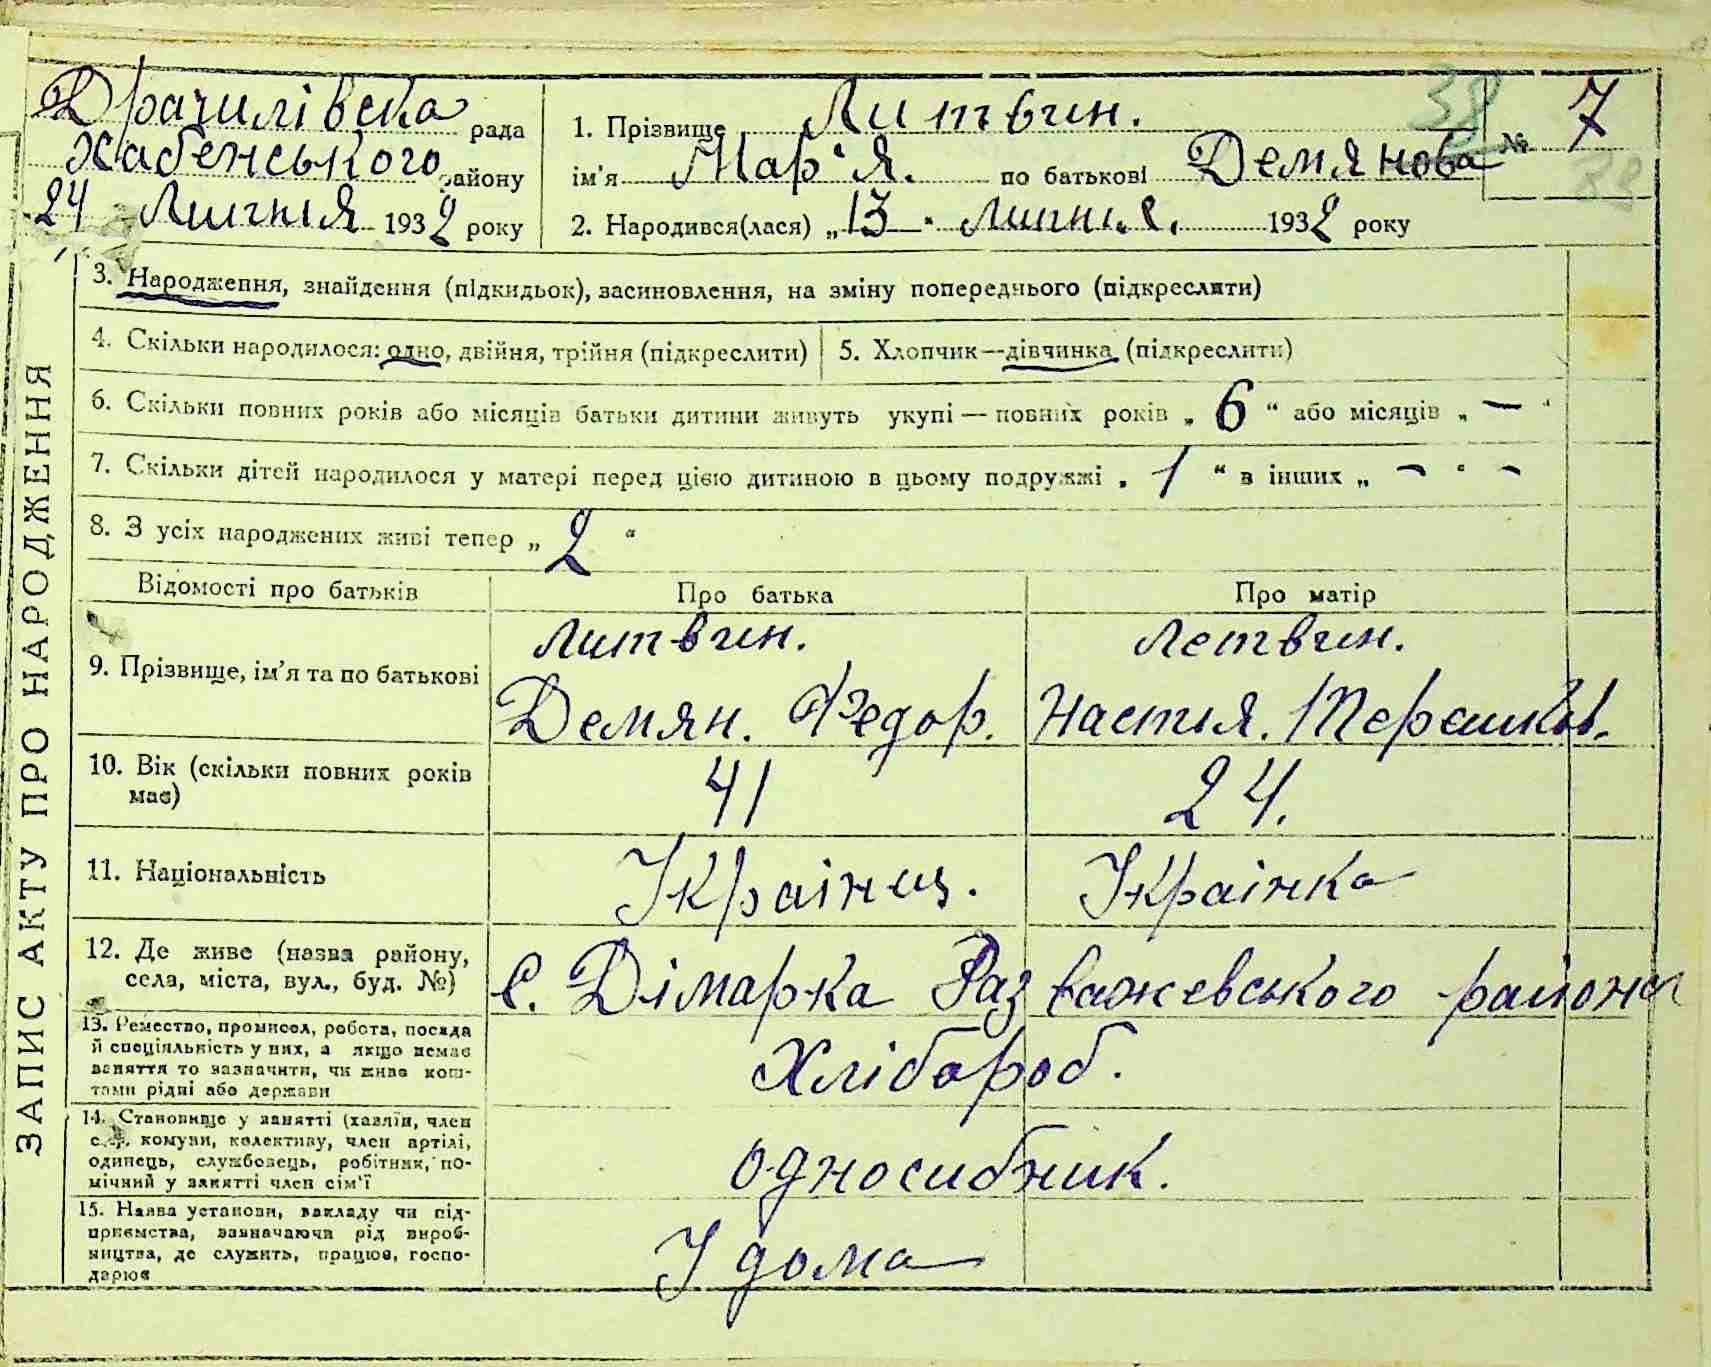 ЗАПИС АКТУ ПРО НАРОДЖЕННЯ
Драчилівська рада
Хабенського району
24 Липня 1932 року
1. Прізвище Литвин. 38 № 7
ім'я Мар'я. по батькові Демянова 38
2. Народився(лася) „13" Липня. 1932 року
3. Народження, знайдення (підкидьок), засиновлення, на зміну попереднього (підкреслити)
4. Скільки народилося: одно, двійня, трійня (підкреслити)
5. Хлопчик—дівчинка (підкреслити)
6. Скільки повних років або місяців батьки дитини живуть укупі — повних років „ 6 “ або місяців „ — “
7. Скільки дітей народилося у матері перед цією дитиною в цьому подружжі „ 1 “ в інших „ — “ —
8. З усіх народжених живі тепер „ 2 “
Відомості про батьків Про батька Про матір
9. Прізвище, ім'я та по батькові
Литвин. Летвин.
Демян. Федор. Настія.
10. Вік (скільки повних років має) 41 24.
11. Національність Українц. Українка
12. Де живе (назва району, села, міста, вул., буд. №)
с. Дімарка Разважевського района
13. Ремество, промисел, робота, посада
й спеціяльність у них, а якщо немає
заняття то зазначити, чи живе кош-
тами рідні або держави
Хлібороб.
14. Становище у занятті (хазяїн, член
с.-г. комуни, колективу, член артілі,
одинець, службовець, робітник, по-
мічний у занятті член сім'ї
односибник.
15. Назва установи, закладу чи під-
приємства, зазначаючи рід вироб-
ництва, де служить, працює, госпо-
дарює
У дома